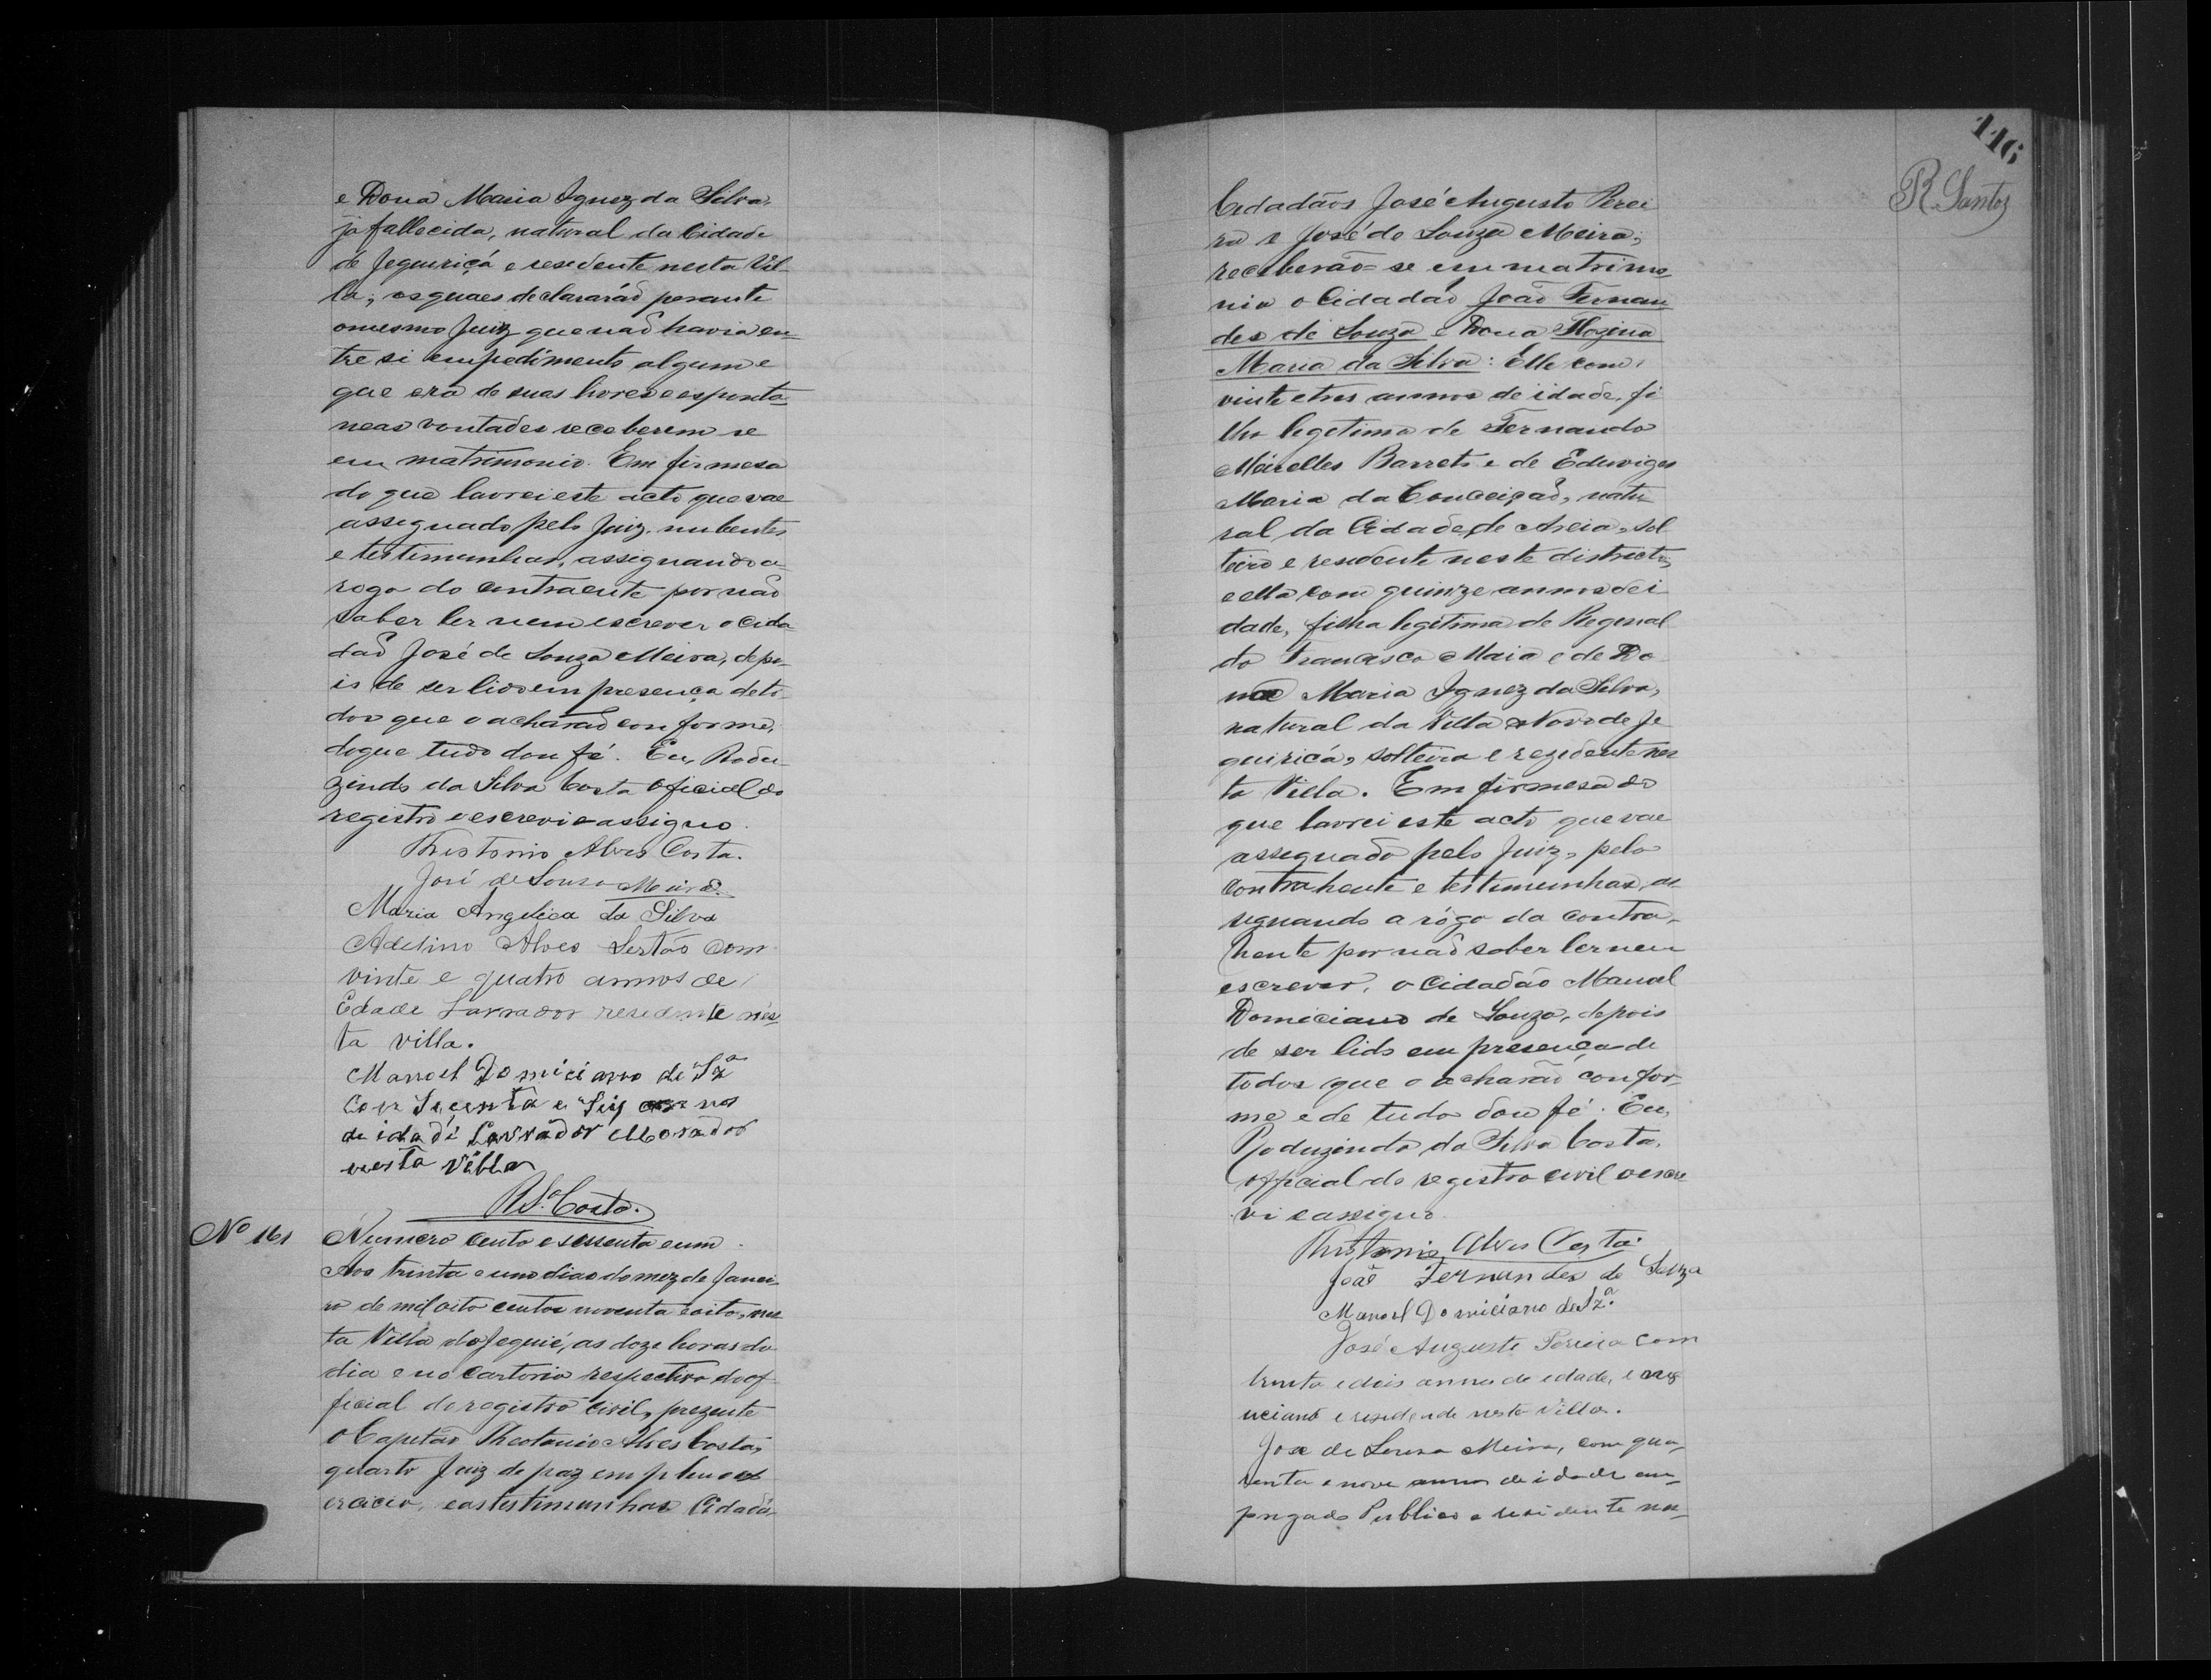 e Dona Maria Ignez da Silva,
já fallecida, natural da Cidade
de Jequiriçá e resedente nesta Vil-
la; os quaes declararão perante
o mesmo Juiz que não havia en-
tre si empedimento algum e
que era de suas livres e esponta-
neas vontades receberem se
em matrimonio. Em firmesa
do que lavrei este acto que vae
assegnado pelo Juiz, nubentes
e testimunhas, assegnando a
rogo do contraente por não
saber ler nem escrever o Cida
dão José de Souza Meira, depo-
is de ser lido em presença de to-
dos que o acharão conforme,
do que tudo dou fé. Eu, Rodu
zindo da Silva Costa Oficial do
registro o escrevi e assigno.
Theotonio Alves Costa.
José de Souza Meira.
Maria Angelica da Silva
Adelino Alves Sertão com
vinte e quatro annos de
Edade Lavrador resedente nes-
ta villa.
Manoel Domiciano de Sza
Com Secenta e Seis annos
de idade Lavrador Morador
nesta Villa
R Sa Costa.
No 161 Numero cento e sessenta e um.
Aos trinta e um dias do mez de Janei-
ro de mil oito centos noventa e oito, nes
ta Villa do Jequié, as doze horas do
dia e no cartorio respectivo do of
ficial do registro civil, prezente
o Capitão Theotonio Alves Costa,
quarto Juiz de paz em pleno ex
ercicio, e as testimunhas Cidadã-
116
R. Santos
Cidadãos José Augusto Perei
ra e José de Souza Meira;
receberão-se em matrimo-
nio o Cidadão João Fernan
des de Souza e Dona Flozina
Maria da Silva: Elle com
vinte e tres annos de idade, fi
lho legetimo de Fernando
Meirelles Barreto e de Eduviges
Maria da Conceição, natu
ral da Cidade de Areia, sol
teiro e resedente neste districto;
e ella com quinze annos de i
dade, filha legitima de Regenal
do Francisco Maia e de Do
na Maria Ignez da Silva,
natural da Villa Nova de Je
quiriçá, solteira e rezedente nes
ta Villa. Em firmesa do
que lavrei este acto que vae
assegnado pelo Juiz, pelo
contrahente e testimunhas, as
segnando a rôgo da contra-
hente por não saber ler nem
escrever, o Cidadão Manoel
Domeciano de Souza, depois
de ser lido em presença de
todos que o acharão confor-
me e de tudo dou fé. Eu,
Roduzindo da Silva Costa,
official do registro civil o escre
vi e assigno.
Theotonio Alves Costa.
João Fernandes de Souza
Manoel Domiciano de Sza.
José Augusto Pereira com
trinta e dois annos de edade, e neg
uciante e residende nesta Villa.
Jose de Souza Meira, com qua-
renta e nove annos de idade em-
pregado Publico e residente nes-